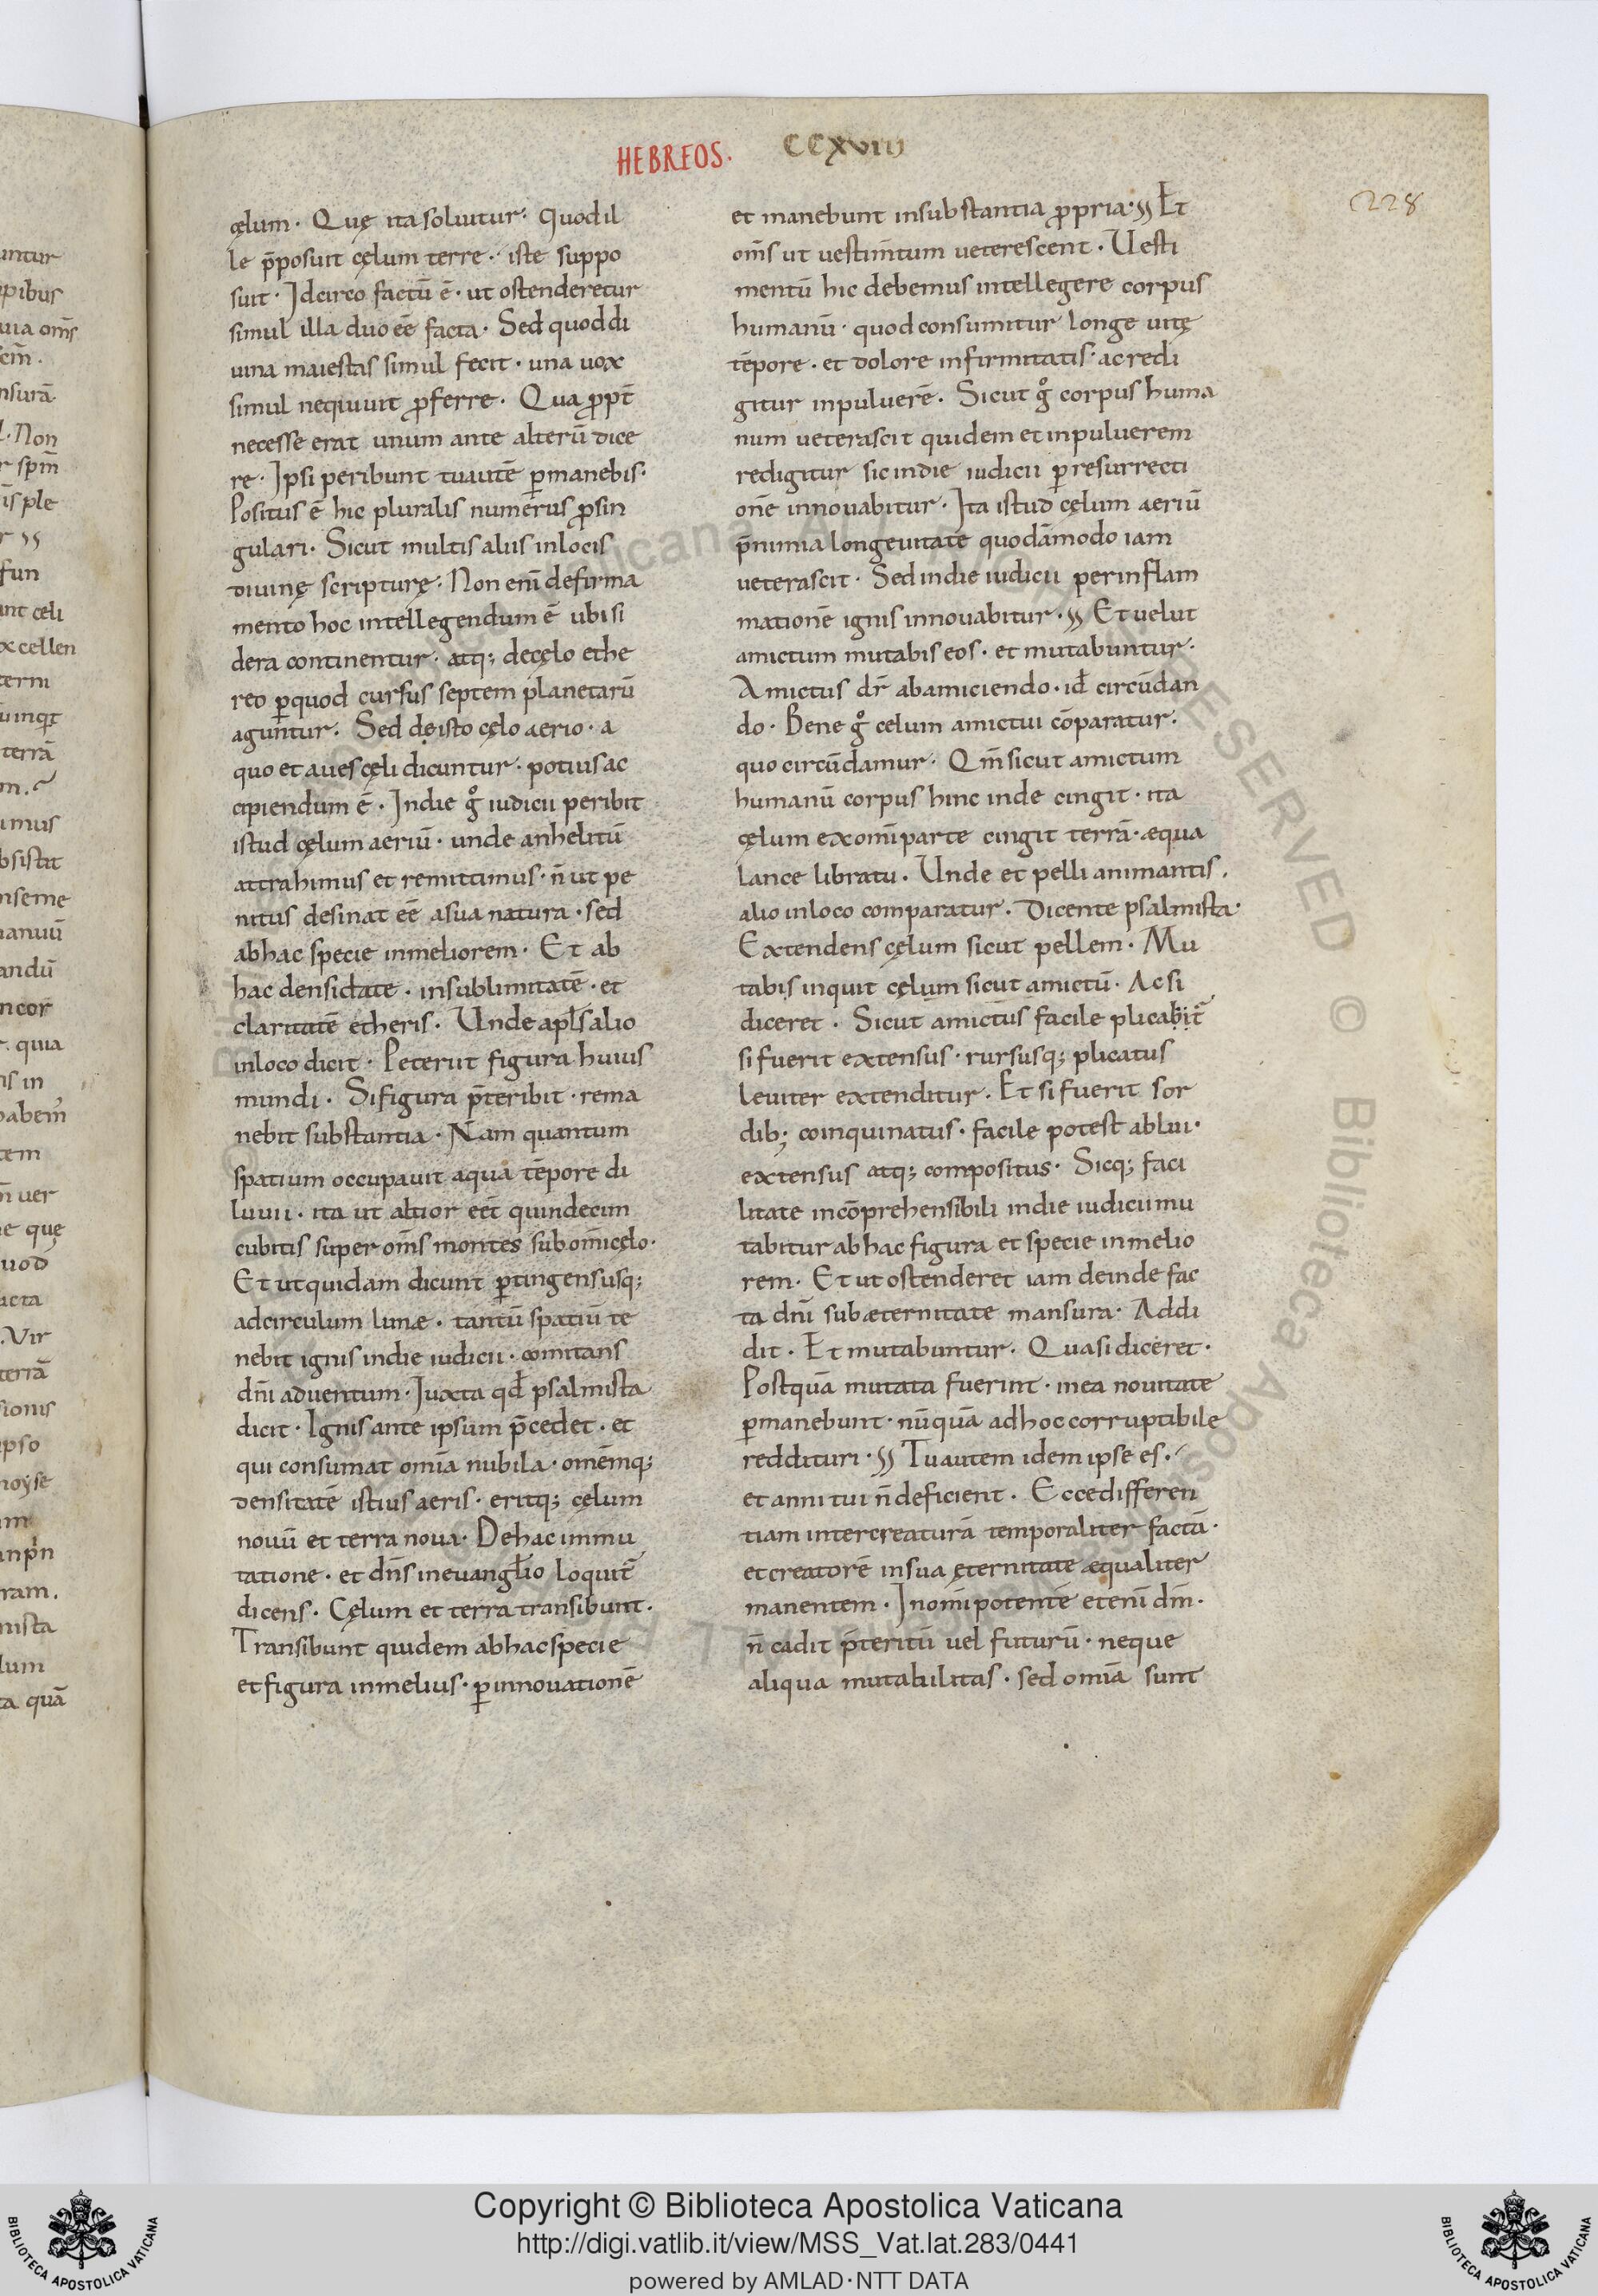 HEBREOS.
CCXVIIII
228
cęlum. Quę ita soluitur. Quod il
le p̄posuit cęlum terre. iste suppo
suit. Idcirco factū ē. ut ostenderetur
simul illa duo eē facta. Sed quod di
uina maiestas simul fecit. una uox
simul nequiuit ꝓferre. Qua ꝓpt̄
necesse erat unum ante alterū dice
re. Ipsi peribunt tu autē ꝑmanebis.
Positus ē hic pluralis numerus ꝓ sin
gulari. Sicut multis aliis in locis
diuinę scripturę. Non enī de firma
mento hoc intellegendum ē ubi si
dera continentur. atq; de cęlo ethe
reo ꝑ quod cursus septem planetarū
aguntur. Sed de isto cęlo aerio. a
quo et aues cęli dicuntur. potius ac
cipiendum ē. In die gͦ iudicii peribit
istud cęlum aeriū. unde anhelitū
attrahimus et remittimus. n̄ ut pe
nitus desinat eē a sua natura. sed
ab hac specie in meliorem. Et ab
hac densitate. in sublimitatē. et
claritatē etheris. Unde apl̄s alio
in loco dicit. Peterit figura huius
mundi. Si figura p̄teribit. rema
nebit substantia. Nam quantum
spatium occupauit aqua tēpore di
luuii. ita ut altior eēt quindecim
cubitis super om̄s montes sub om̄i cęlo.
Et ut quidam dicunt ꝑtingens usq;
ad circulum lunæ. tantū spatiū te
nebit ignis in die iudicii. comitans
dn̄i aduentum. Iuxta qd̄ psalmista
dicit. Ignis ante ipsum p̄cedet. et
qui consumat om̄ia nubila. omēmq;
densitatē istius aeris. eritq; cęlum
nouū et terra noua. De hac immu
tatione. et dn̄s in euangl̄io loquit̄
dicens. Cęlum et terra transibunt.
Transibunt quidem ab hac specie
et figura in melius. ꝑ innouationē
et manebunt in substantia ꝓpria. Et
om̄s ut uestim̄tum ueterescent. Uesti
mentū hic debemus intellegere corpus
humanū. quod consumitur longe uitę
tēpore. et dolore infirmitatis. ac redi
gitur in puluerē. Sicut gͦ corpus huma
num ueterascit quidem et in puluerem
redigitur sic in die iudicii ꝑ resurrecti
onē innouabitur. Ita istud cęlum aeriū
p̄ nimia longeuitate quodāmodo iam
ueterascit. Sed in die iudicii per inflam
mationē ignis innouabitur. Et uelut
amictum mutabis eos. et mutabuntur.
Amictus dr̄ ab amiciendo. id̄ circūdan
do. Bene gͦ celum amictui cōparatur.
quo circūdamur. Qm̄ sicut amictum
humanū corpus hinc inde cingit. ita
cęlum ex om̄i parte cingit terrā. æqua
lance libratu. Unde et pelli animantis.
alio in loco comparatur. Dicente psalmista.
Extendens cęlum sicut pellem. Mu
tabis inquit cęlum sicut amictū. Ac si
diceret. Sicut amictus facile plicabit̄
si fuerit extensus. rursusq; plicatus
leuiter extenditur. Et si fuerit sor
dib; coinquinatus. facile potest ablui.
extensus atq; compositus. Sicq; faci
litate incōprehensibili in die iudicii mu
tabitur ab hac figura et specie in melio
rem. Et ut ostenderet iam deinde fac
ta dn̄i sub æternitate mansura. Addi
dit. Et mutabuntur. Quasi diceret.
Postquā mutata fuerint. mea nouitate
ꝑmanebunt. nūquā ad hoc corruptibile
reddituri. Tu autem idem ipse es.
et anni tui n̄ deficient. Ecce differen
tiam inter creaturā temporaliter factā.
et creatorē in sua ęternitate æqualiter
manentem. In om̄ipotentē etenī dm̄.
n̄ cadit p̄teritū uel futurū. neque
aliqua mutabilitas. sed om̄ia sunt
Copyright © Biblioteca Apostolica Vaticana
http://digi.vatlib.it/view/MSS_Vat.lat.283/0441
powered by AMLAD·NTT DATA